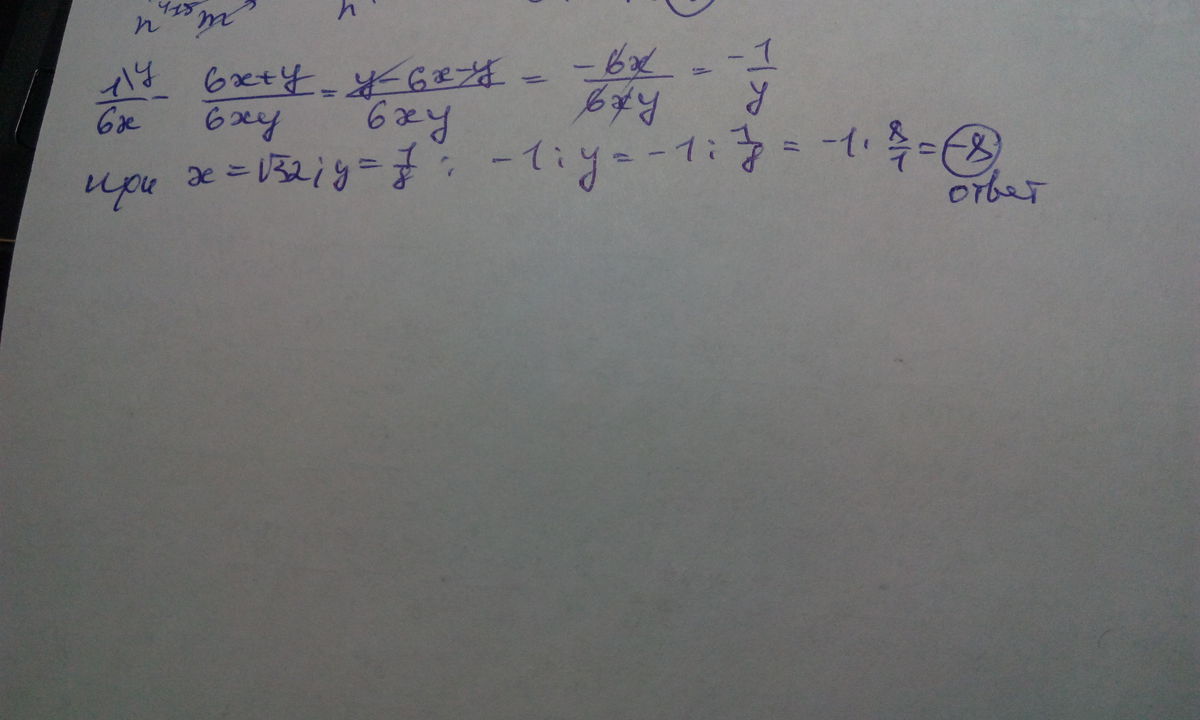 n m n
1\y/6x - 6x+y/6xy = y-6x-y/6xy = -6x/6xy = -1/y
при x = √32; y = 1/8 : -1 : y = -1 : 1/8 = -1 · 8/1 = -8
ответ